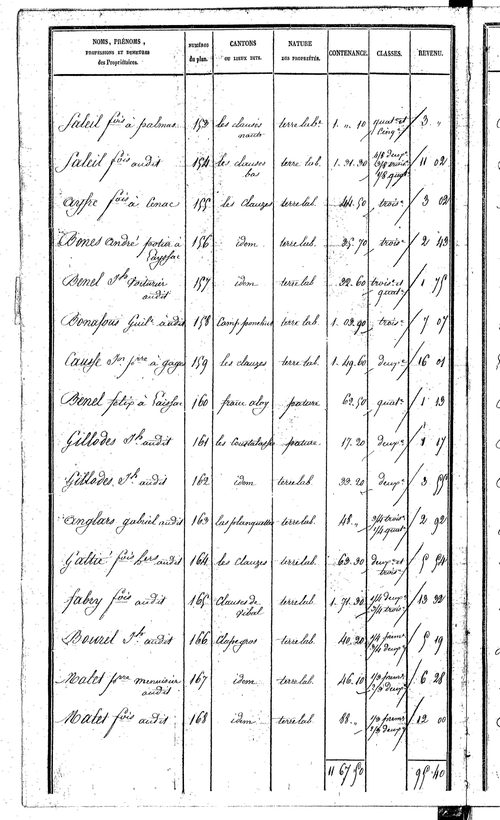 NOMS, PRÉNOMS, PROFESSIONS ET DEMEURES des Propriétaires. NUMÉROS du plan. CANTONS OU LIEUX DITS. NATURE DES PROPRIÉTÉS. CONTENANCE. CLASSES. REVENU.
Saleil fois à palmas 153 les clauses hauts terre lab. 1. „. 10 quat. et cinq. 3 „
Saleil fois audit 154 les clauses bas terre lab. 1. 31. 30 11 02
ayfre fois à Cenac 155 les Clauzes terre lab. 44. 50 trois. 3 02
Bones andré à Layssac 156 idem terre lab. 35. 70 trois. 2 43
Benel Jh voiturier audit 157 idem terre lab 32. 60 trois. et quat. 1 75
Bonafous Guil. audit 158 Camp terre lab. 1. 03. 90 trois. 7 07
Causse pre à gages 159 les clauzes terre lab. 1. 49. 60 deux. 16 01
Benel felix à Laissac 160 pature 62. 50 quat. 1 13
Gillodes Jh audit 161 les pature 17. 20 deux. 1 17
Gillodes Jh audit 162 idem terre lab. 39. 20 deux. 3 55
anglars gabriel audit 163 las planquettes terre lab. 48. „ 3/4 trois. 1/4 quat. 2 92
Galtié fois audit 164 les Clauzes terre lab. 63. 30 deux. et trois. 5 54
fabry fois audit 165 Clauses de terre lab. 1. 71. 30 1/4 deux. 3/4 trois. 13 32
Bourel Jh audit 166 Clapegros terre lab. 40. 20 1/4 prem. 3/4 deux. 5 19
Malet pre menuisier audit 167 idem terre lab. 46. 10 1/3 prem. 2/3 deux. 6 28
Malet fois audit 168 idem terre lab. 88. „ 1/3 prem. 2/3 deux. 12 00
11 67 50 95. 40